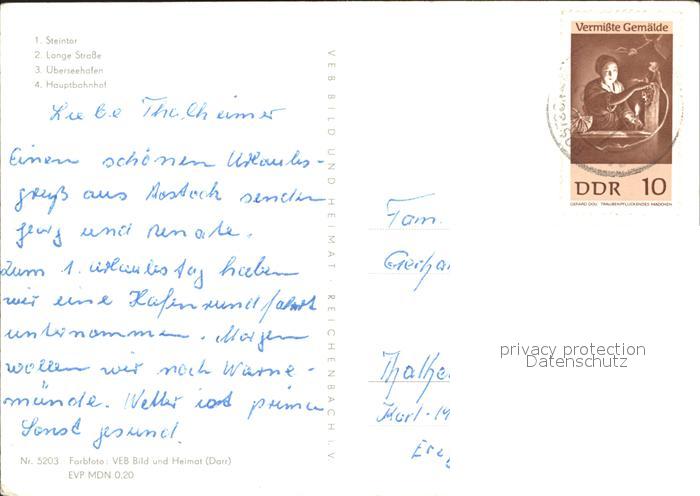 1. Steintor
2. Lange Straße
3. Überseehafen
4. Hauptbahnhof
Liebe Thalheimer
Einen schönen Urlaubs-
gruß aus Rostock senden
Georg und Renate.
Zum 1. Urlaubstag haben
wir eine Hafenrundfahrt
unternommen. Morgen
wollen wir nach Warne-
münde. Wetter ist prima
Sonst gesund.
Nr. 5203 Farbfoto: VEB Bild und Heimat (Darr)
EVP MDN 0,20
VEB BILD UND HEIMAT · REICHENBACH I. V.
Vermißte Gemälde
DDR 10
GERARD DOU, TRAUBENPFLÜCKENDES MÄDCHEN
Fam.
Gerha
Thalhe
Karl-M
Erzg
privacy protection
Datenschutz